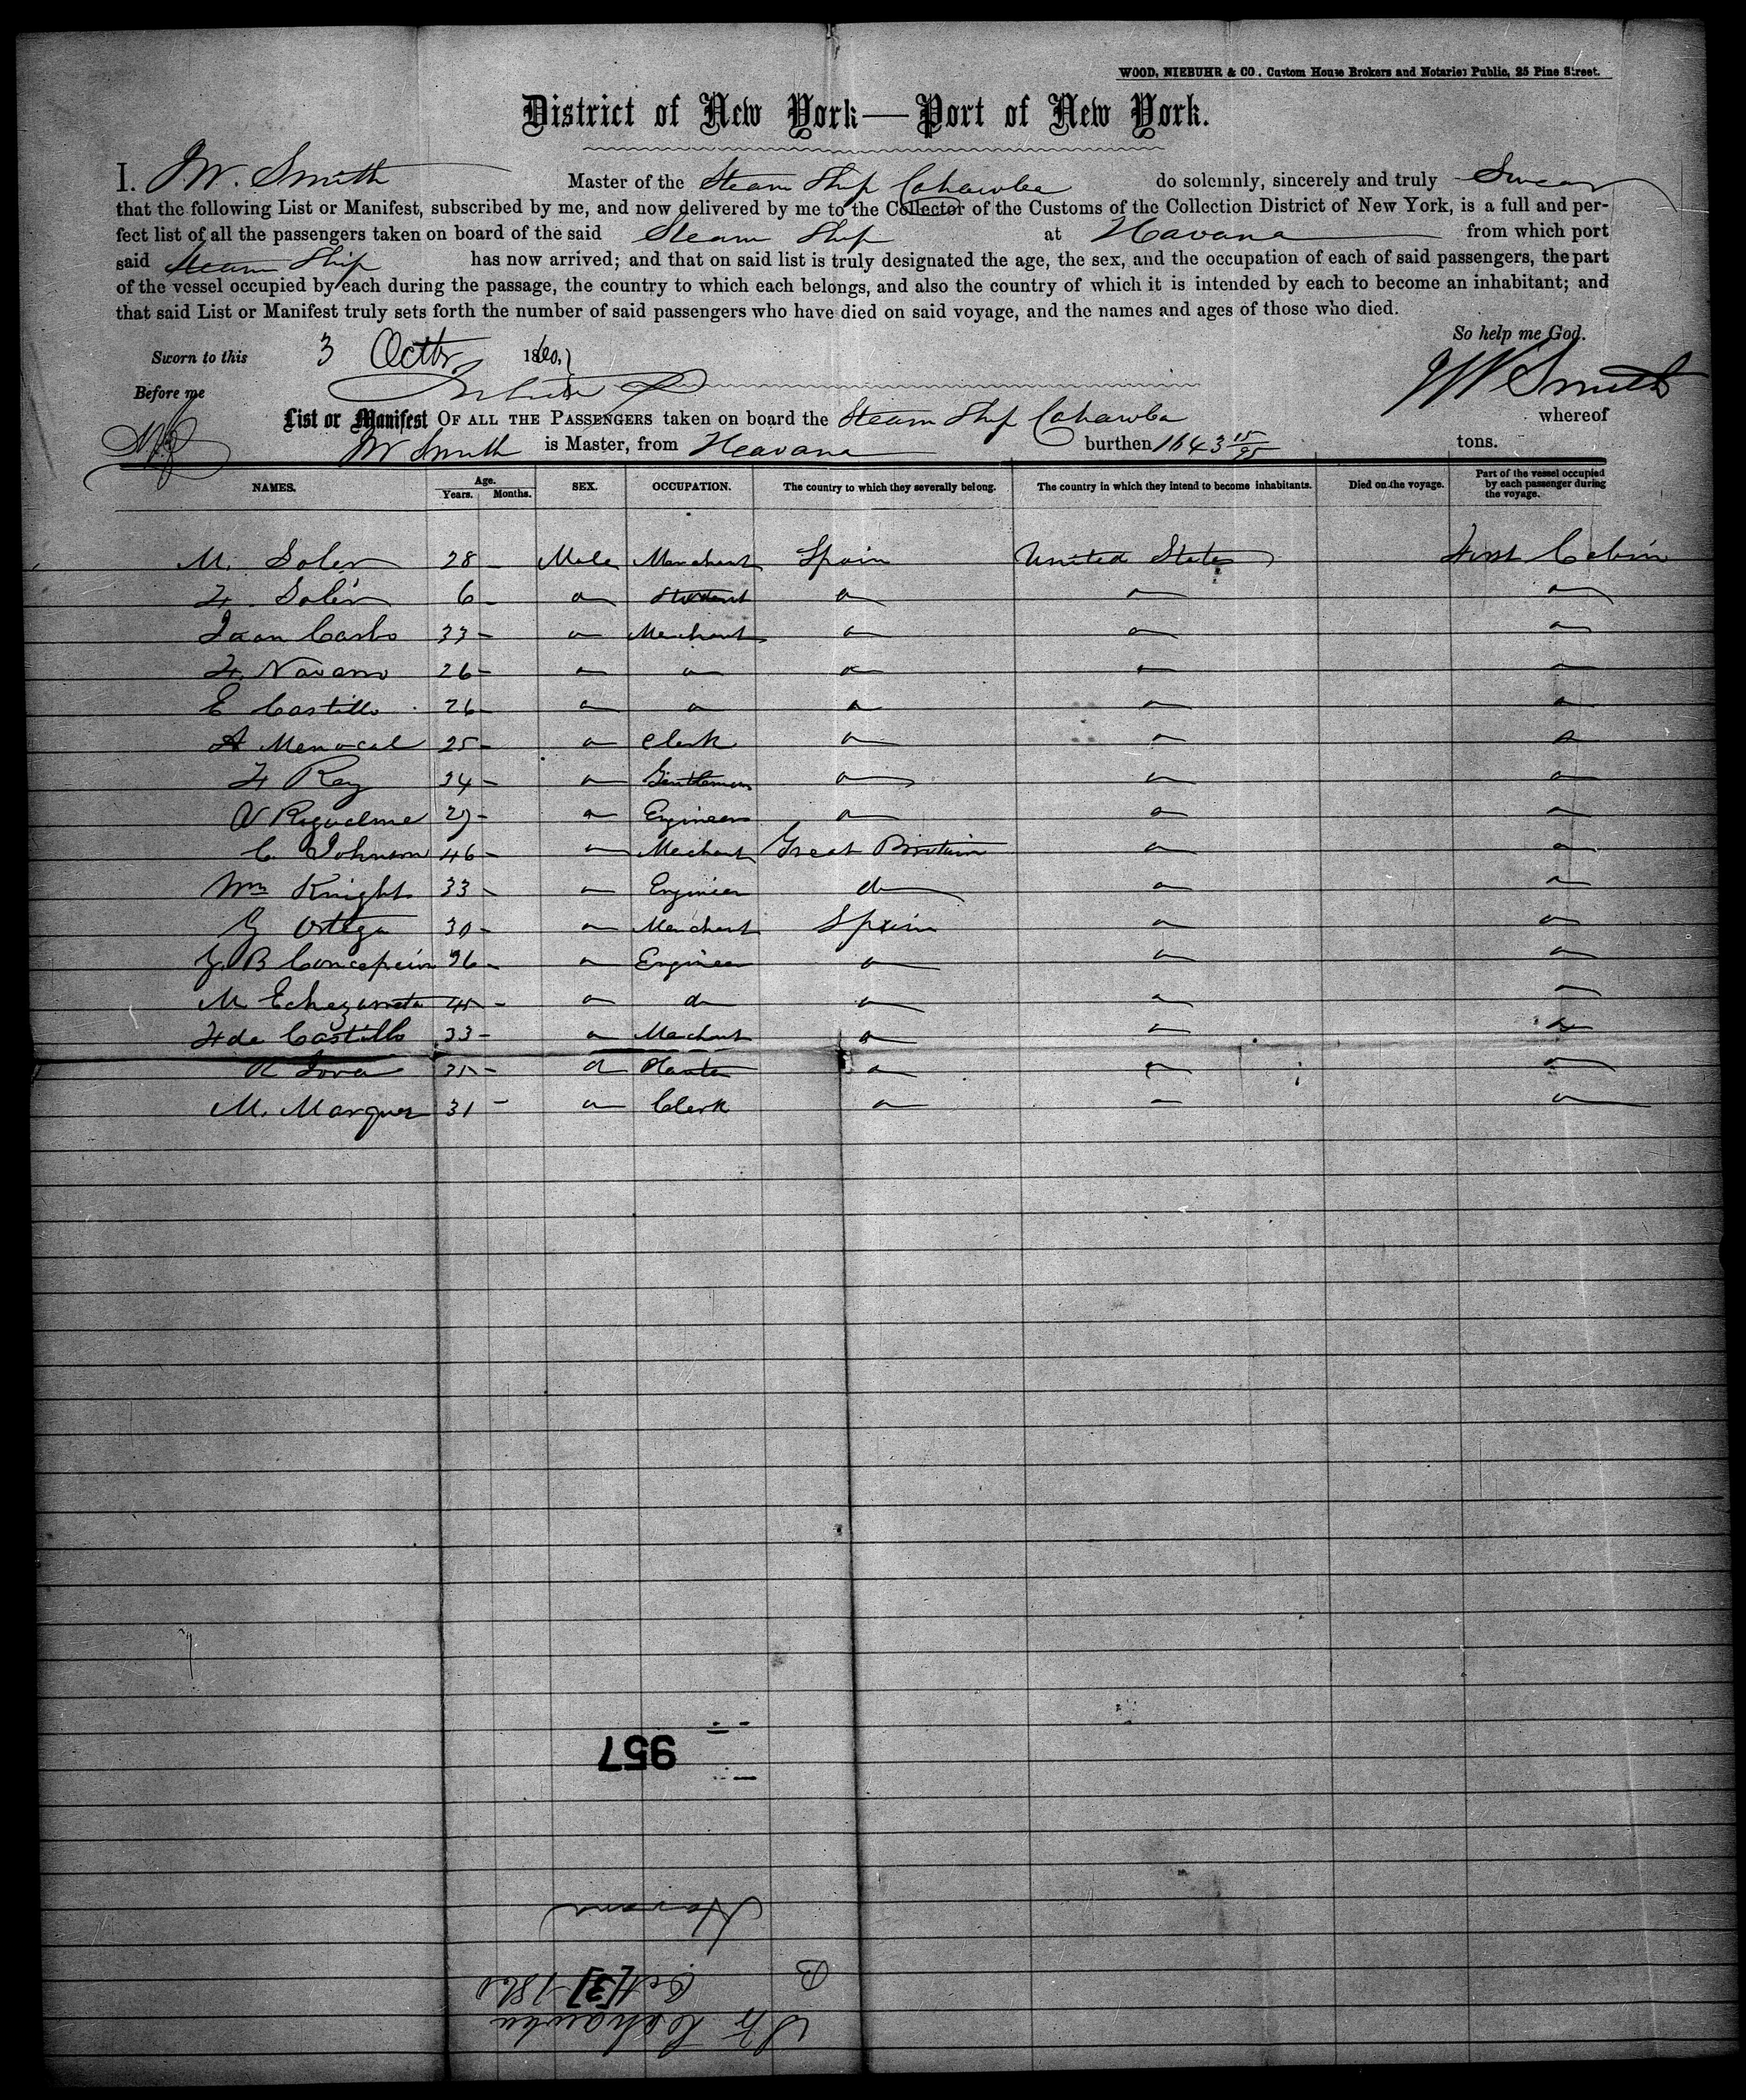 WOOD, NIEBUHR & CO., Custom House Brokers and Notaries Public, 25 Pine Street.
District of New York—Port of New York.
I. JW. Smith Master of the Steam Ship Cahawba do solemnly, sincerely and truly Swear
that the following List or Manifest, subscribed by me, and now delivered by me to the Collector of the Customs of the Collection District of New York, is a full and per-
fect list of all the passengers taken on board of the said Steam Ship at Havana from which port
said Steam Ship has now arrived; and that on said list is truly designated the age, the sex, and the occupation of each of said passengers, the part
of the vessel occupied by each during the passage, the country to which each belongs, and also the country of which it is intended by each to become an inhabitant; and
that said List or Manifest truly sets forth the number of said passengers who have died on said voyage, and the names and ages of those who died.
So help me God.
Sworn to this 3 Octbr 1860,
JW Smith
Before me
List or Manifest OF ALL THE PASSENGERS taken on board the Steam Ship Cahawba whereof
JW Smith is Master, from Havana burthen 1643 15/95 tons.
NAMES. Age. Years. Months. SEX. OCCUPATION. The country to which they severally belong. The country in which they intend to become inhabitants. Died on the voyage. Part of the vessel occupied by each passenger during the voyage.
M. Soler 28 - Male Merchant Spain United States First Cabin
F. Soler 6 - " Student " " "
Juan Carbo 33 - " Merchant " " "
F. Navarro 26 - " " " " "
E Castillo 26 - " " " " "
A Menocal 25 - " Clerk " " "
F Rey 34 - " Gentleman " " "
V Riquelme 29 - " Engineer " " "
C. Johnson 46 - " Merchant Great Britain " "
Wm Knight 33 - " Engineer do " "
G Ortega 30 - " Merchant Spain " "
B Concepcion 36 - " Engineer " " "
M Echezarreta 45 - " do " " "
F de Castillo 33 - " Merchant " " "
35 - " Planter " " "
M. Marquez 31 - " Clerk " " "
957
Havana
B
Oct [3] 1860
Str Cahawba